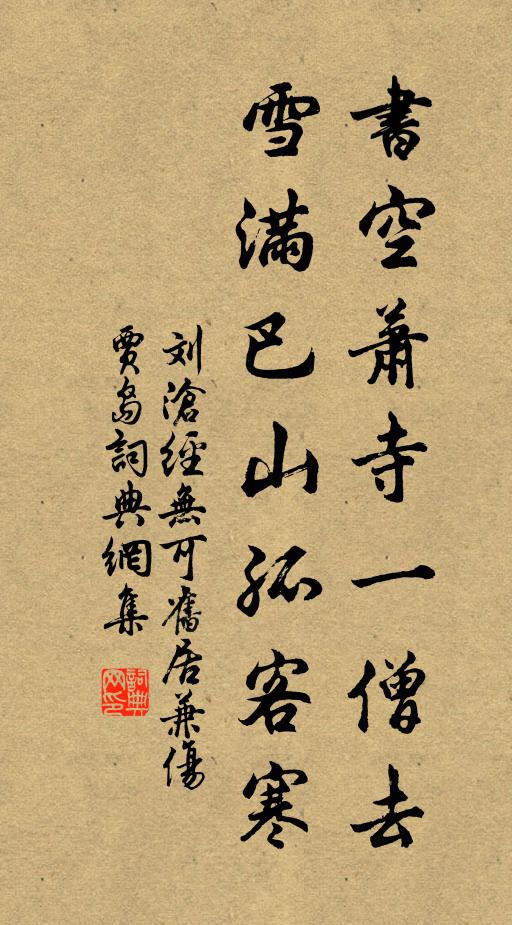 書空蕭寺一僧去
雪滿巴山孤客寒
刘滄經無可舊居兼傷
賈島詞典網集
詞典网印